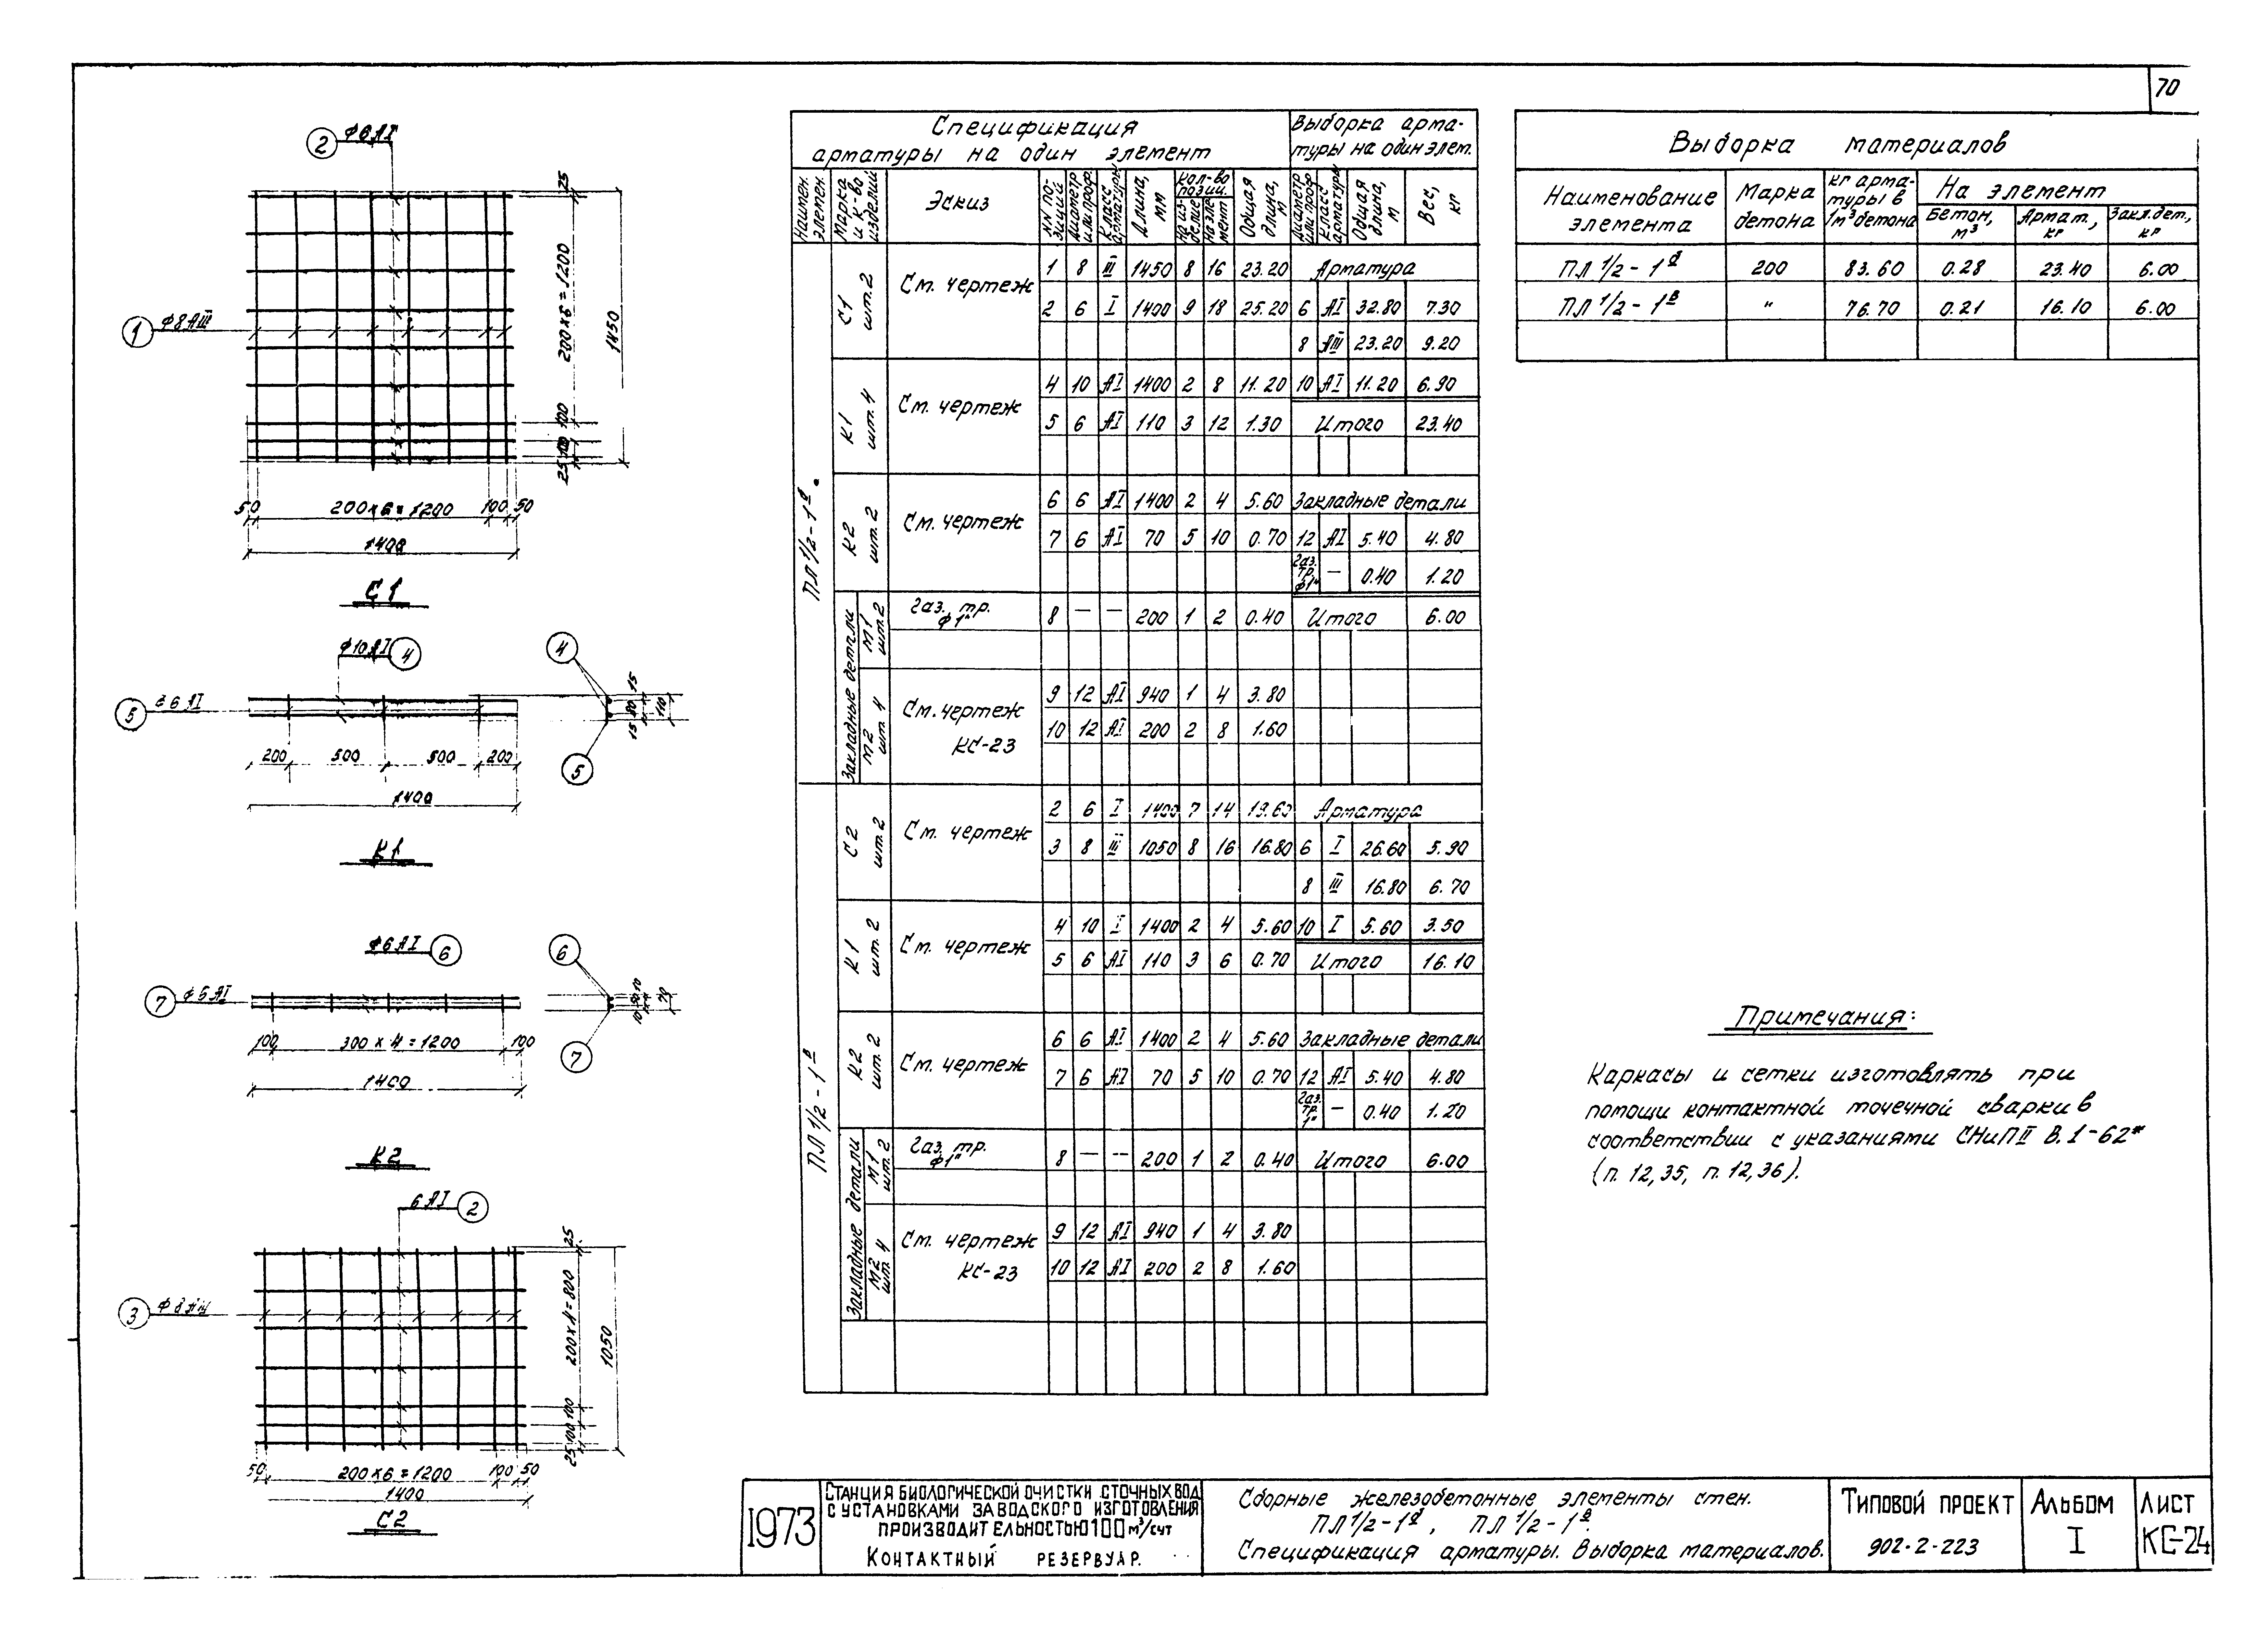 70
2 ф6АI
1 ф8АIII
25
200×6=1200
1450
100
100
25
50 200×6=1200 100 50
1400
С1
ф10АI 4
4
5 ф6АI
15 80 15
110
200 500 500 200
5
1400
К1
ф6АI 6
6
7 ф6АI
10 50 10
70
100 300×4=1200 100
7
1400
К2
6АI 2
3
25
200×4=800
1050
100
100
25
50 200×6=1200 100 50
1400
С2
Спецификация
арматуры на один элемент
Выборка арма-
туры на один элем.
Наимен. элемен.
Марка и к-во изделий
Эскиз
NN по-зиций
Диаметр или проф.
Класс арматуры
Длина, мм
Кол-во позиц.
на из-делие
на эле-мент
Общая длина, м
Диаметр или проф.
Класс арматуры
Общая длина, м
Вес, кг
ПЛ 1/2-1а
С1 шт.2
См. чертеж
1 8 III 1450 8 16 23.20 Арматура
2 6 I 1400 9 18 25.20 6 АI 32.80 7.30
8 АIII 23.20 9.20
К1 шт.4
См. чертеж
4 10 АI 1400 2 8 11.20 10 АI 11.20 6.90
5 6 АI 110 3 12 1.30 Итого 23.40
К2 шт.2
См. чертеж
6 6 АI 1400 2 4 5.60 Закладные детали
7 6 АI 70 5 10 0.70 12 АI 5.40 4.80
Газ. тр. ф1" — 0.40 1.20
Закладные детали
М1 шт.2
Газ. тр. ф1"
8 — — 200 1 2 0.40 Итого 6.00
М2 шт. 4
См. чертеж
КС-23
9 12 АI 940 1 4 3.80
10 12 АI 200 2 8 1.60
ПЛ 1/2-1в
С2 шт.2
См. чертеж
2 6 I 1400 7 14 19.60 Арматура
3 8 III 1050 8 16 16.80 6 I 26.60 5.90
8 III 16.80 6.70
К1 шт.2
См. чертеж
4 10 I 1400 2 4 5.60 10 I 5.60 3.50
5 6 АI 110 3 6 0.70 Итого 16.10
К2 шт.2
См. чертеж
6 6 АI 1400 2 4 5.60 Закладные детали
7 6 АI 70 5 10 0.70 12 АI 5.40 4.80
Газ. тр. 1" — 0.40 1.20
Закладные детали
М1 шт.2
Газ. тр. ф1"
8 — -- 200 1 2 0.40 Итого 6.00
М2 шт. 4
См. чертеж
КС-23
9 12 АI 940 1 4 3.80
10 12 АI 200 2 8 1.60
Выборка материалов
Наименование элемента
Марка бетона
кг арма-туры в 1м³ бетона
На элемент
Бетон, м³
Армат., кг
Закл.дет., кг
ПЛ 1/2-1а 200 83.60 0.28 23.40 6.00
ПЛ 1/2-1в " 76.70 0.21 16.10 6.00
Примечания:
Каркасы и сетки изготовлять при
помощи контактной точечной сварки в
соответствии с указаниями СНиП II В. 1-62*
(п. 12,35, п. 12,36).
1973
Станция биологической очистки сточных вод
с установками заводского изготовления
производительностью 100 м³/сут
Контактный резервуар.
Сборные железобетонные элементы стен.
ПЛ 1/2-1а, ПЛ 1/2-1в.
Спецификация арматуры. Выборка материалов.
Типовой проект
902-2-223
Альбом
I
Лист
КС-24